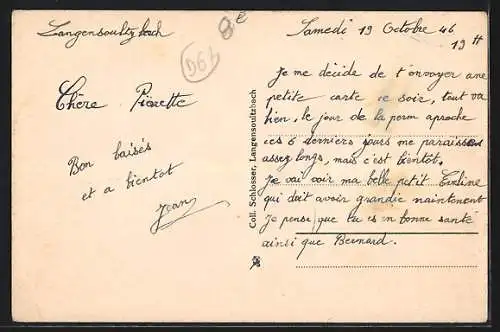 Langensoultzbach
8e
D61
Samedi 19 Octobre 46
19 H
Chère Pierette
Je me décide de t'envoyer une
petite carte ce soir, tout va
bien, le jour de la perm aproche
ces 6 derniers jours me paraissent
assez longs, mais c'est bientôt.
Je vai voir ma belle petit Eveline
qui doit avoir grandie maintenant
Je pense que tu es en bonne santé
ainsi que Bernard.
Bon baisés
et a bientot
Jean
Coll. Schlosser, Langensoultzbach